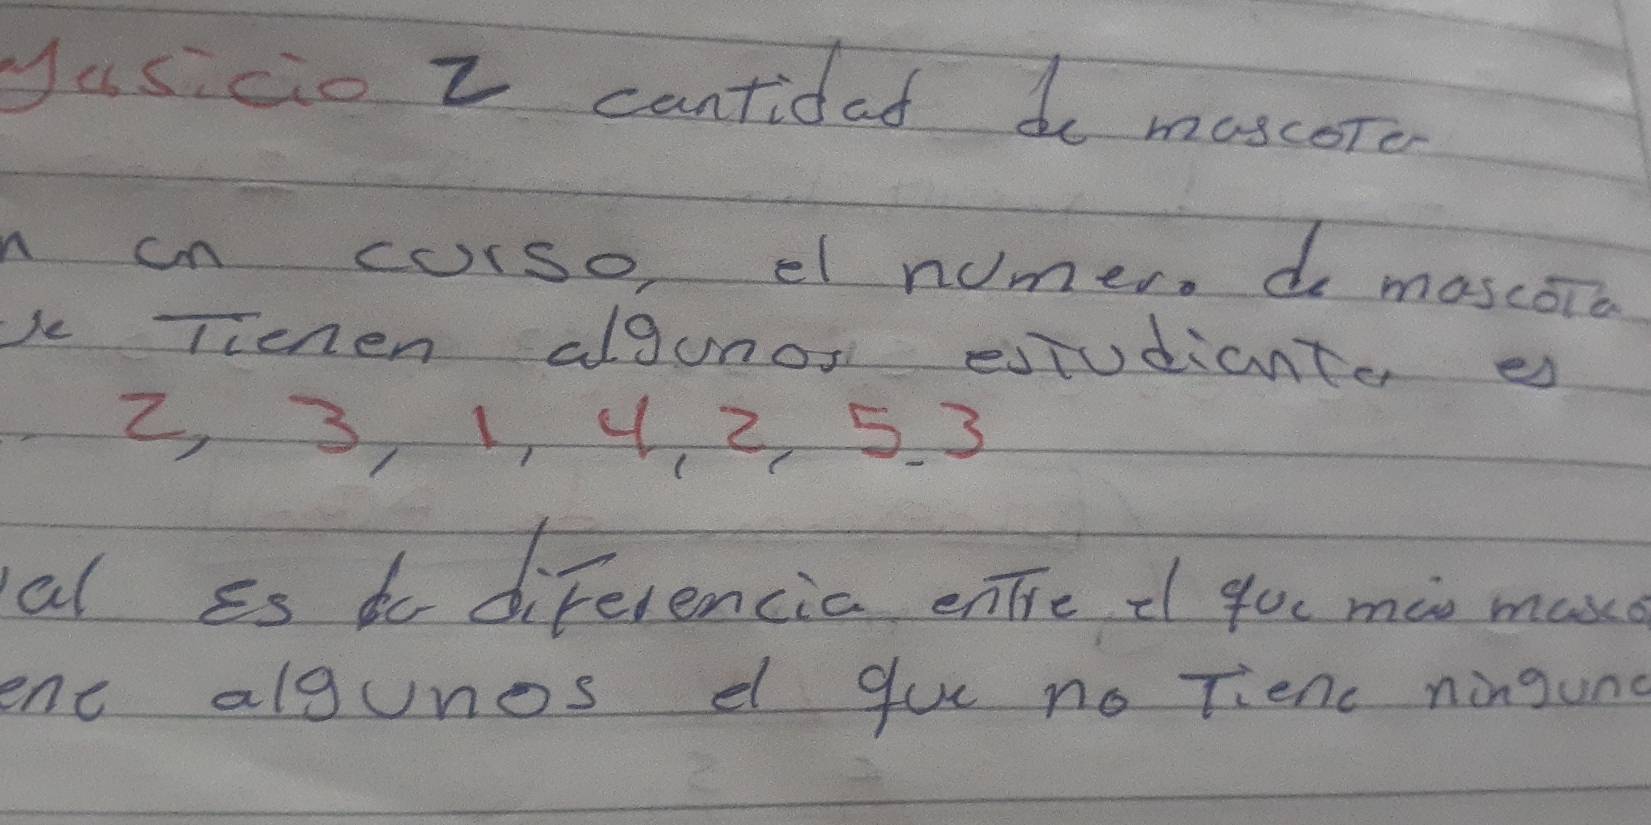 yusicio 2 cantidad de mascota
n cn curso, el numero de mascota
ue Tienen algunos estudiante es
2, 3, 1, 4, 2, 5.3
ual Es la diferencia entre el que mas masco
ene algunos el que no Tiene ninguno